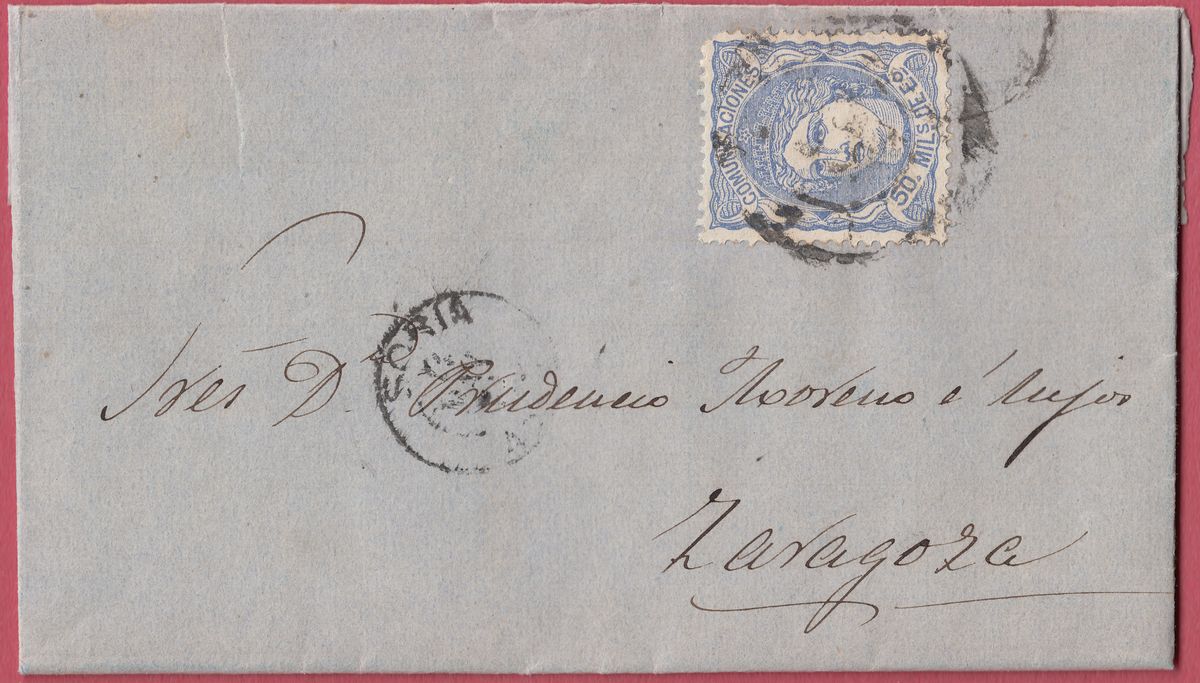 COMUNICACIONES
50. MILS. DE Eo.
SORIA
Sres D. Prudencio Moreno é hijos
Zaragoza